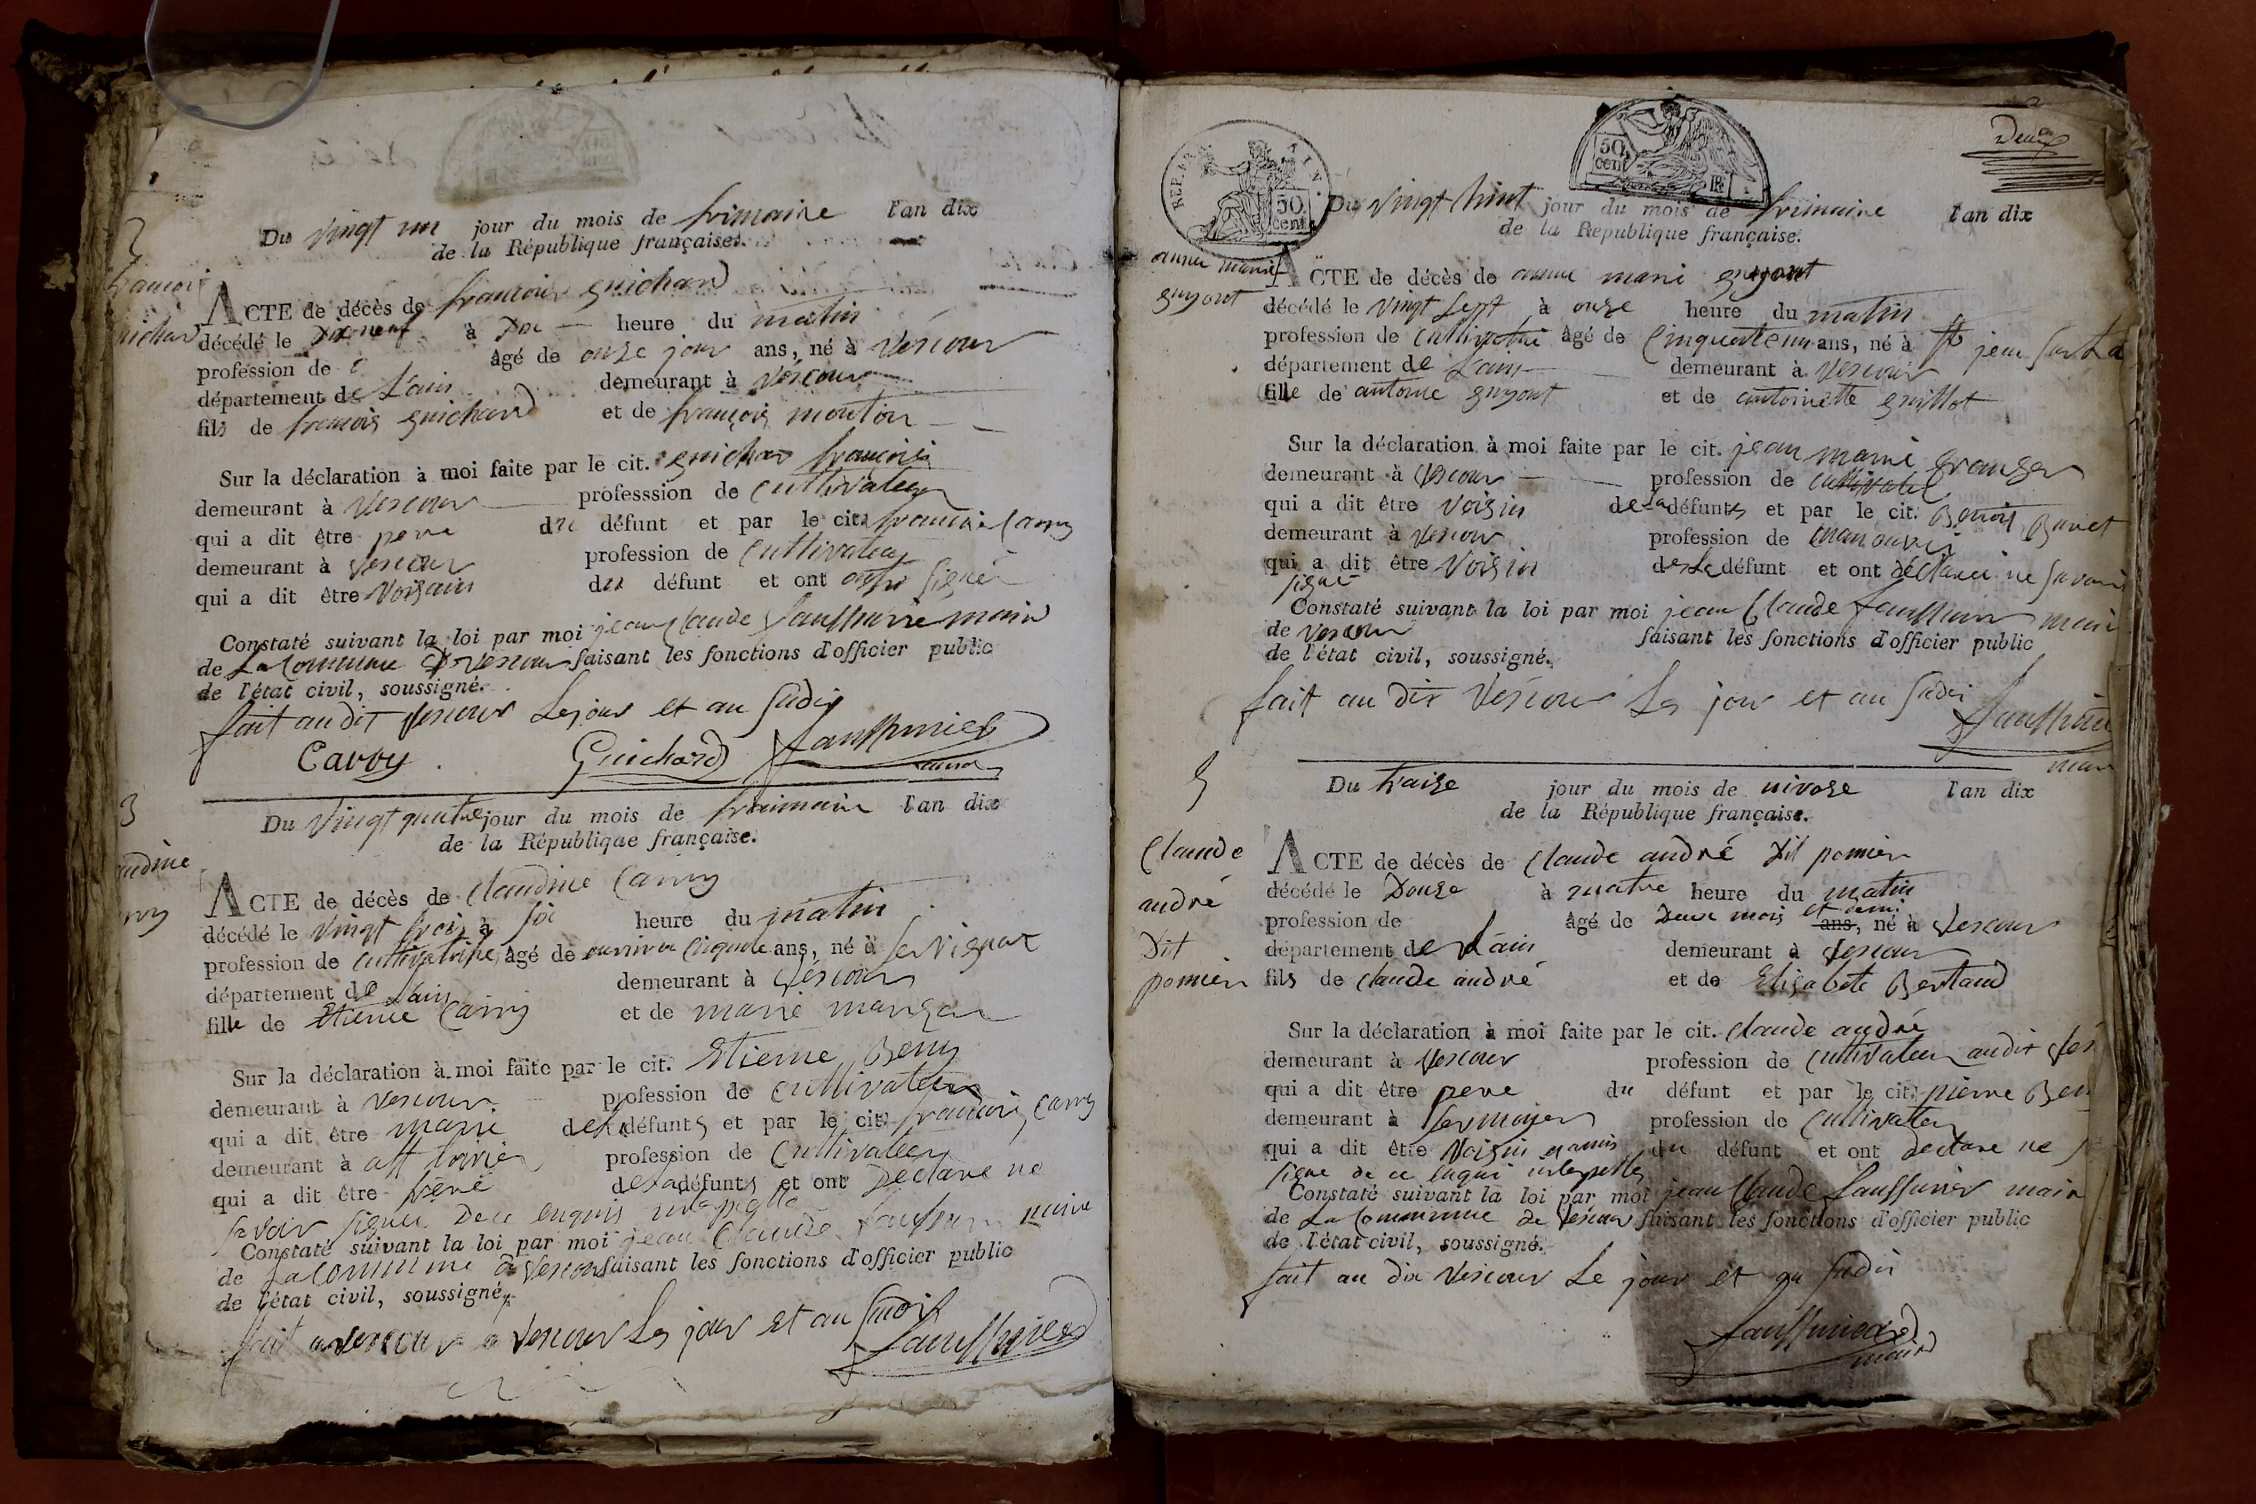 2
Du vingt un jour du mois de frimaire l'an dix
de la République française.
francois
guichard
ACTE de décès de francois guichard
décédé le Dixneuf à Dix heure du matin
profession de âgé de onze jour ans, né à Vescour
département de Lain demeurant à Vescour
fils de francois guichard et de françois mouton
Sur la déclaration à moi faite par le cit. guichard françois
demeurant à Vescour professsion de Cultivateur
qui a dit être pere du défunt et par le cit. francoi Carry
demeurant à Vescour profession de Cultivateur
qui a dit être Voisain du défunt et ont signé
Constaté suivant la loi par moi jean Claude maire
de La Commune De Vescour faisant les fonctions d'officier public
de l'état civil, soussigné.
fait au dit Vescour Les jour et an Sudis
Carry Guichard
3
Du Vingt quatre jour du mois de frimaire l'an dix
de la République française.
audine
rry
ACTE de décès de Claudine Carry
décédé le Vingt trois à Six heure du matin
profession de Cultivatrice âgé de ans, né à
département de Lain demeurant à Vescour
fille de Etienne Carry et de marie
Sur la déclaration à moi faite par le cit. Etienne Beny
demeurant à Vescour profession de Cultivateur
qui a dit être marie de La défunte et par le cit. francoi Carry
demeurant à profession de Cultivateur
qui a dit être de La défunte et ont Declare ne
savoir signer Dece enquis
Constaté suivant la loi par moi jean Claude maire
de La Commune de Vescour faisant les fonctions d'officier public
de l'état civil, soussigné.
fait a Vescour Les jour et an Sudis
2
Deux
REP. FRA
50
cent
50
cent
Du Vingt huit jour du mois de frimaire l'an dix
de la République française.
anne marie
guyont
ACTE de décès de anne marie guyont
décédé le Vingt Sept à onze heure du matin
profession de Cultivatrice âgé de Cinquante un ans, né à St jean Sur
département de Lain demeurant à Vescour
fille de antoine guyont et de antoinette guillot
Sur la déclaration à moi faite par le cit. jean marie granger
demeurant à Vescour profession de Cultivateur
qui a dit être Voisin de La défunte et par le cit. Benoit Buvet
demeurant à Vescour profession de manouvri
qui a dit être Voisin de La défunt et ont déclarer ne savoir
signer
Constaté suivant la loi par moi jean Claude maire
de Vescour faisant les fonctions d'officier public
de l'état civil, soussigné.
fait au dit Vescour Les jour et an Sudis
maire
5
Du traize jour du mois de nivose l'an dix
de la République française.
Claude
andré
Dit
pomier
ACTE de décès de Claude andré Dit pomier
décédé le Douze à quatre heure du matin
profession de âgé de Deux mois et demi ans, né à Vescour
département de Lain demeurant à Vescour
fils de Claude andré et de Elisabete Bertaud
Sur la déclaration à moi faite par le cit. Claude andré
demeurant à Vescour profession de Cultivateur audit Ves
qui a dit être pere du défunt et par le cit. pierre Ben
demeurant à Sermoyer profession de Cultivateur
qui a dit être Voisin et amis du défunt et ont declare ne
signe de ce enquis
Constaté suivant la loi par moi jean Claude maire
de La Commune de Vescour faisant les fonctions d'officier public
de l'état civil, soussigné.
fait au dit Vescour Le jour et an Sudis
maire